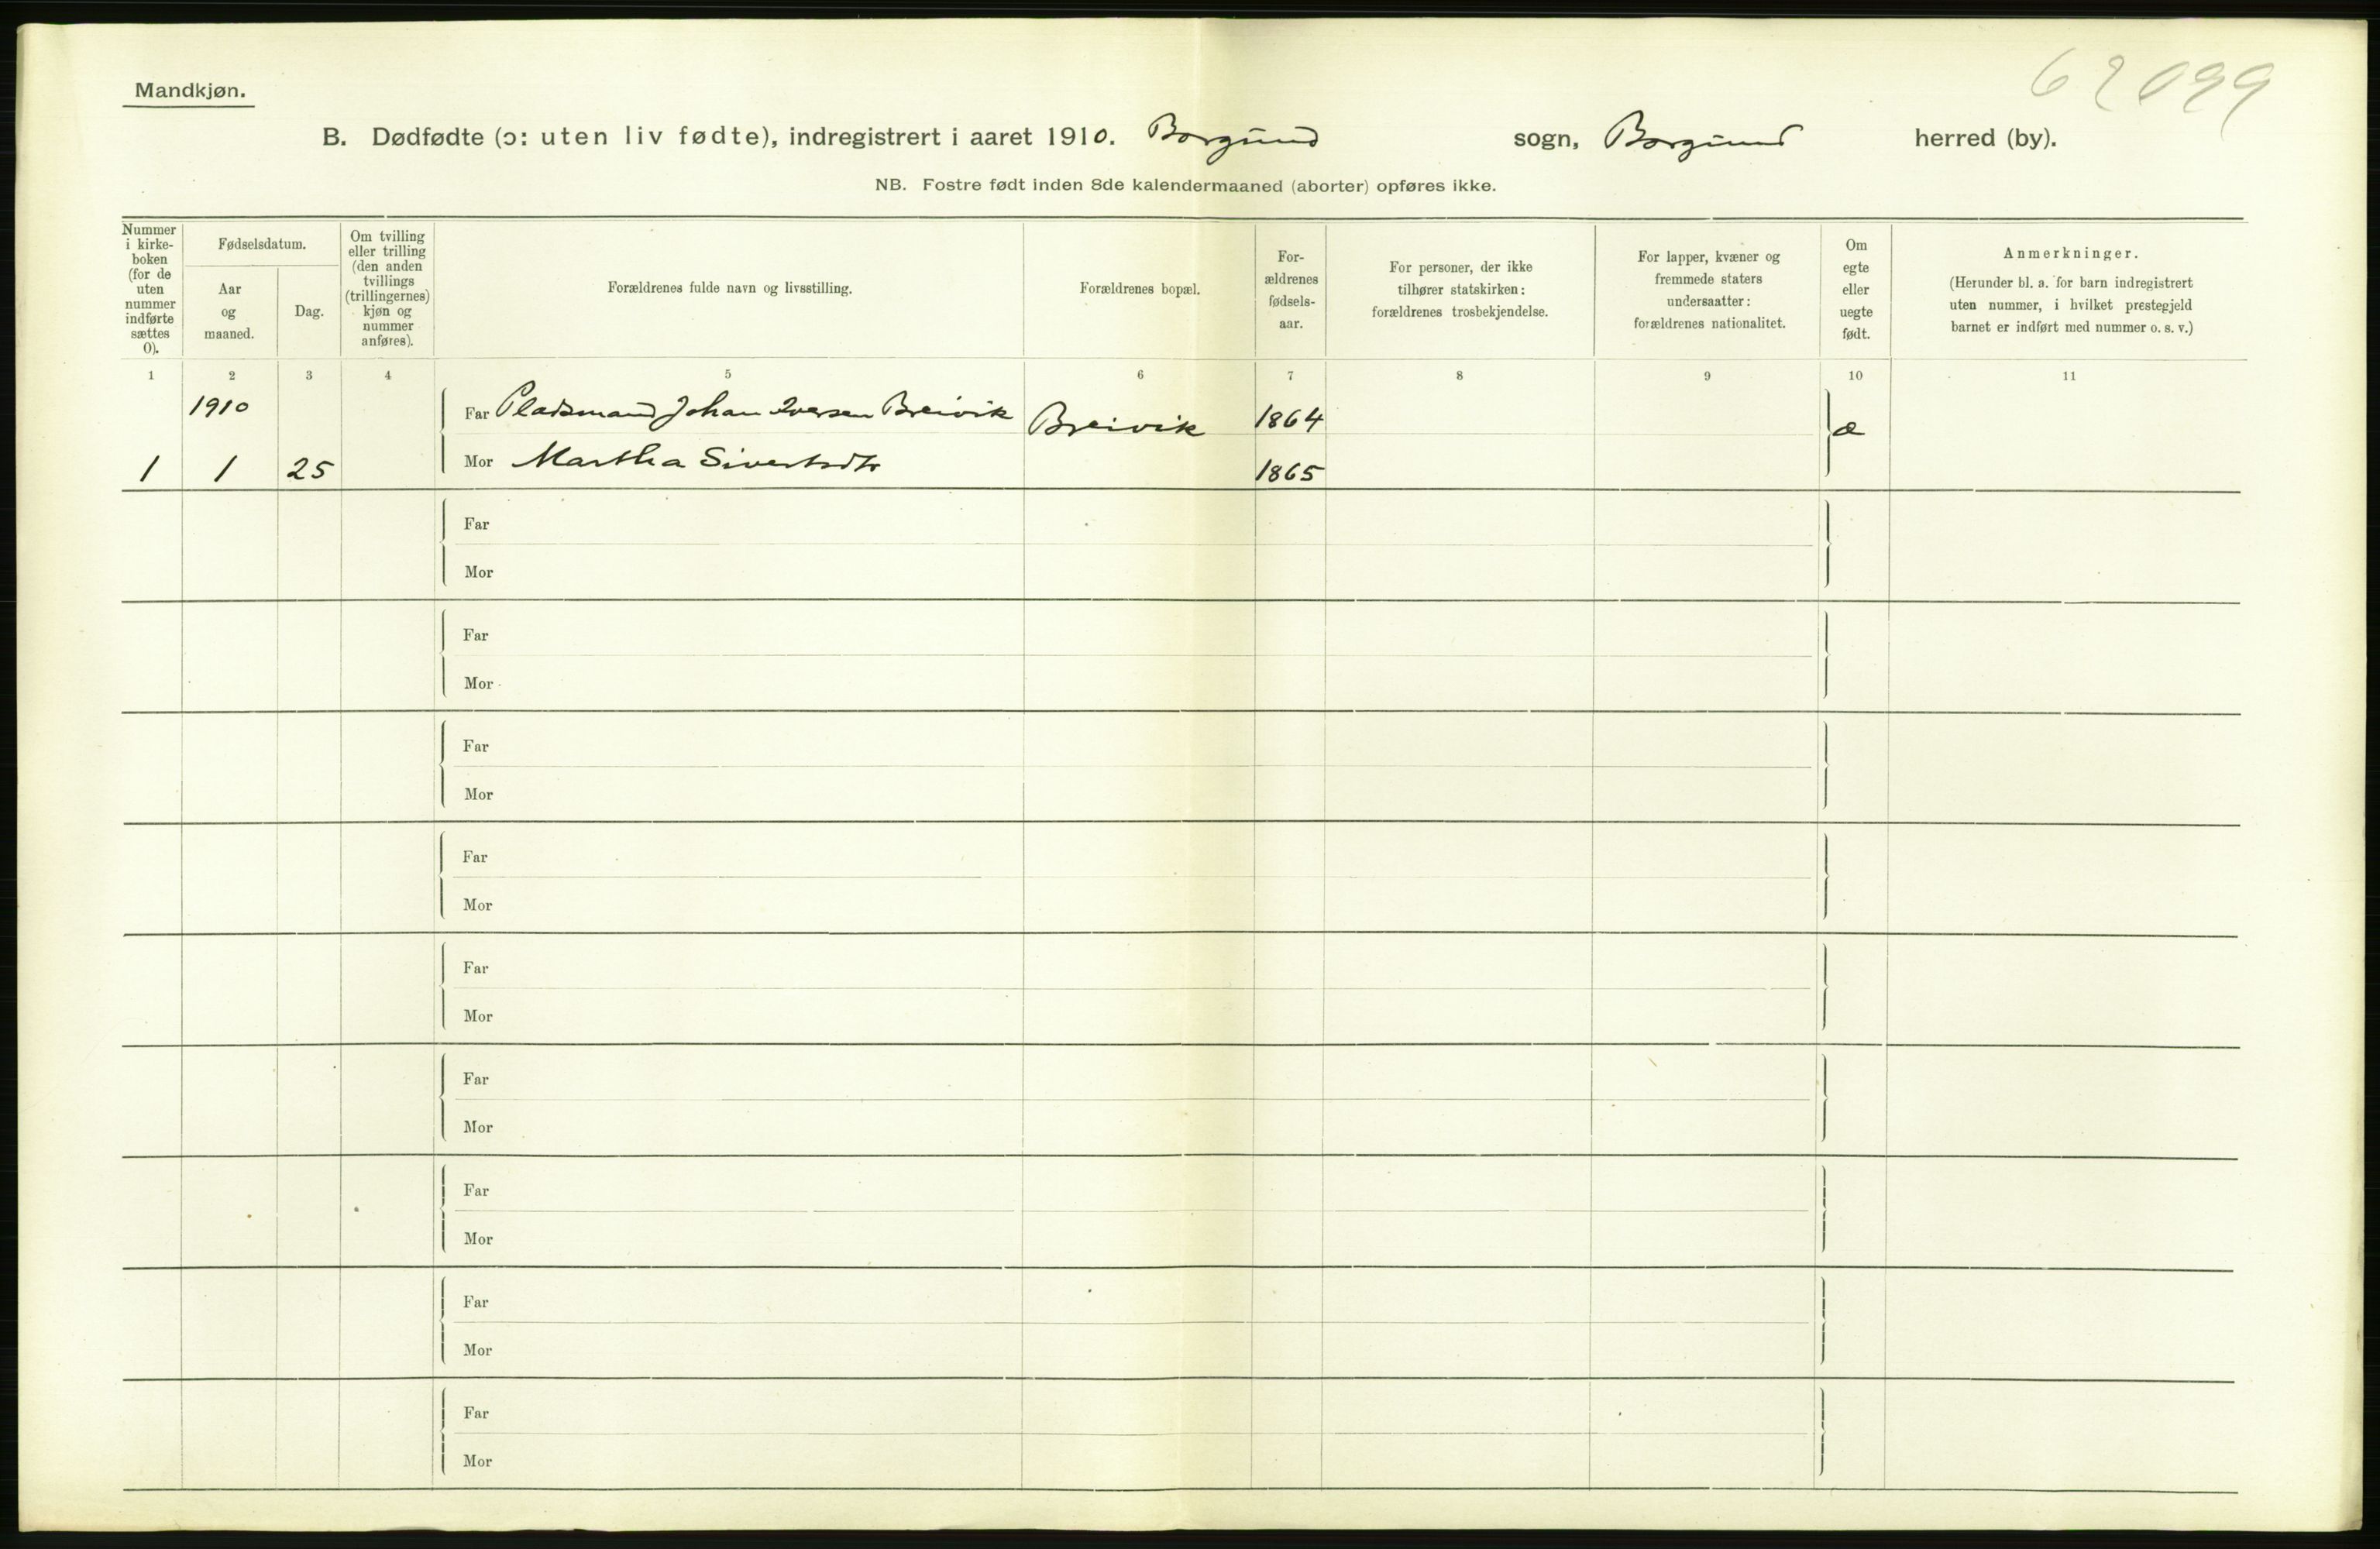 62099
Mandkjøn.
B. Dødfødte (ɔ: uten liv fødte), indregistrert i aaret 1910. Borgund sogn, Borgund herred (by).
NB. Fostre født inden 8de kalendermaaned (aborter) opføres ikke.
Nummer i kirke-boken (for de uten nummer indførte sættes 0).
Fødselsdatum.
Aar og maaned.
Dag.
Om tvilling eller trilling (den anden tvillings (trillingernes) kjøn og nummer anføres).
Forældrenes fulde navn og livsstilling.
Forældrenes bopæl.
For-ældrenes fødsels-aar.
For personer, der ikke tilhører statskirken: forældrenes trosbekjendelse.
For lapper, kvæner og fremmede staters undersaatter: forældrenes nationalitet.
Om egte eller uegte født.
Anmerkninger.
(Herunder bl. a. for barn indregistrert uten nummer, i hvilket prestegjeld barnet er indført med nummer o. s. v.)
1 2 3 4 5 6 7 8 9 10 11
1910 Far Pladsmand Johan Iversen Breivik Breivik 1864 æ
1 1 25 Mor Martha Sivertsdtr 1865
Far
Mor
Far
Mor
Far
Mor
Far
Mor
Far
Mor
Far
Mor
Far
Mor
Far
Mor
Far
Mor